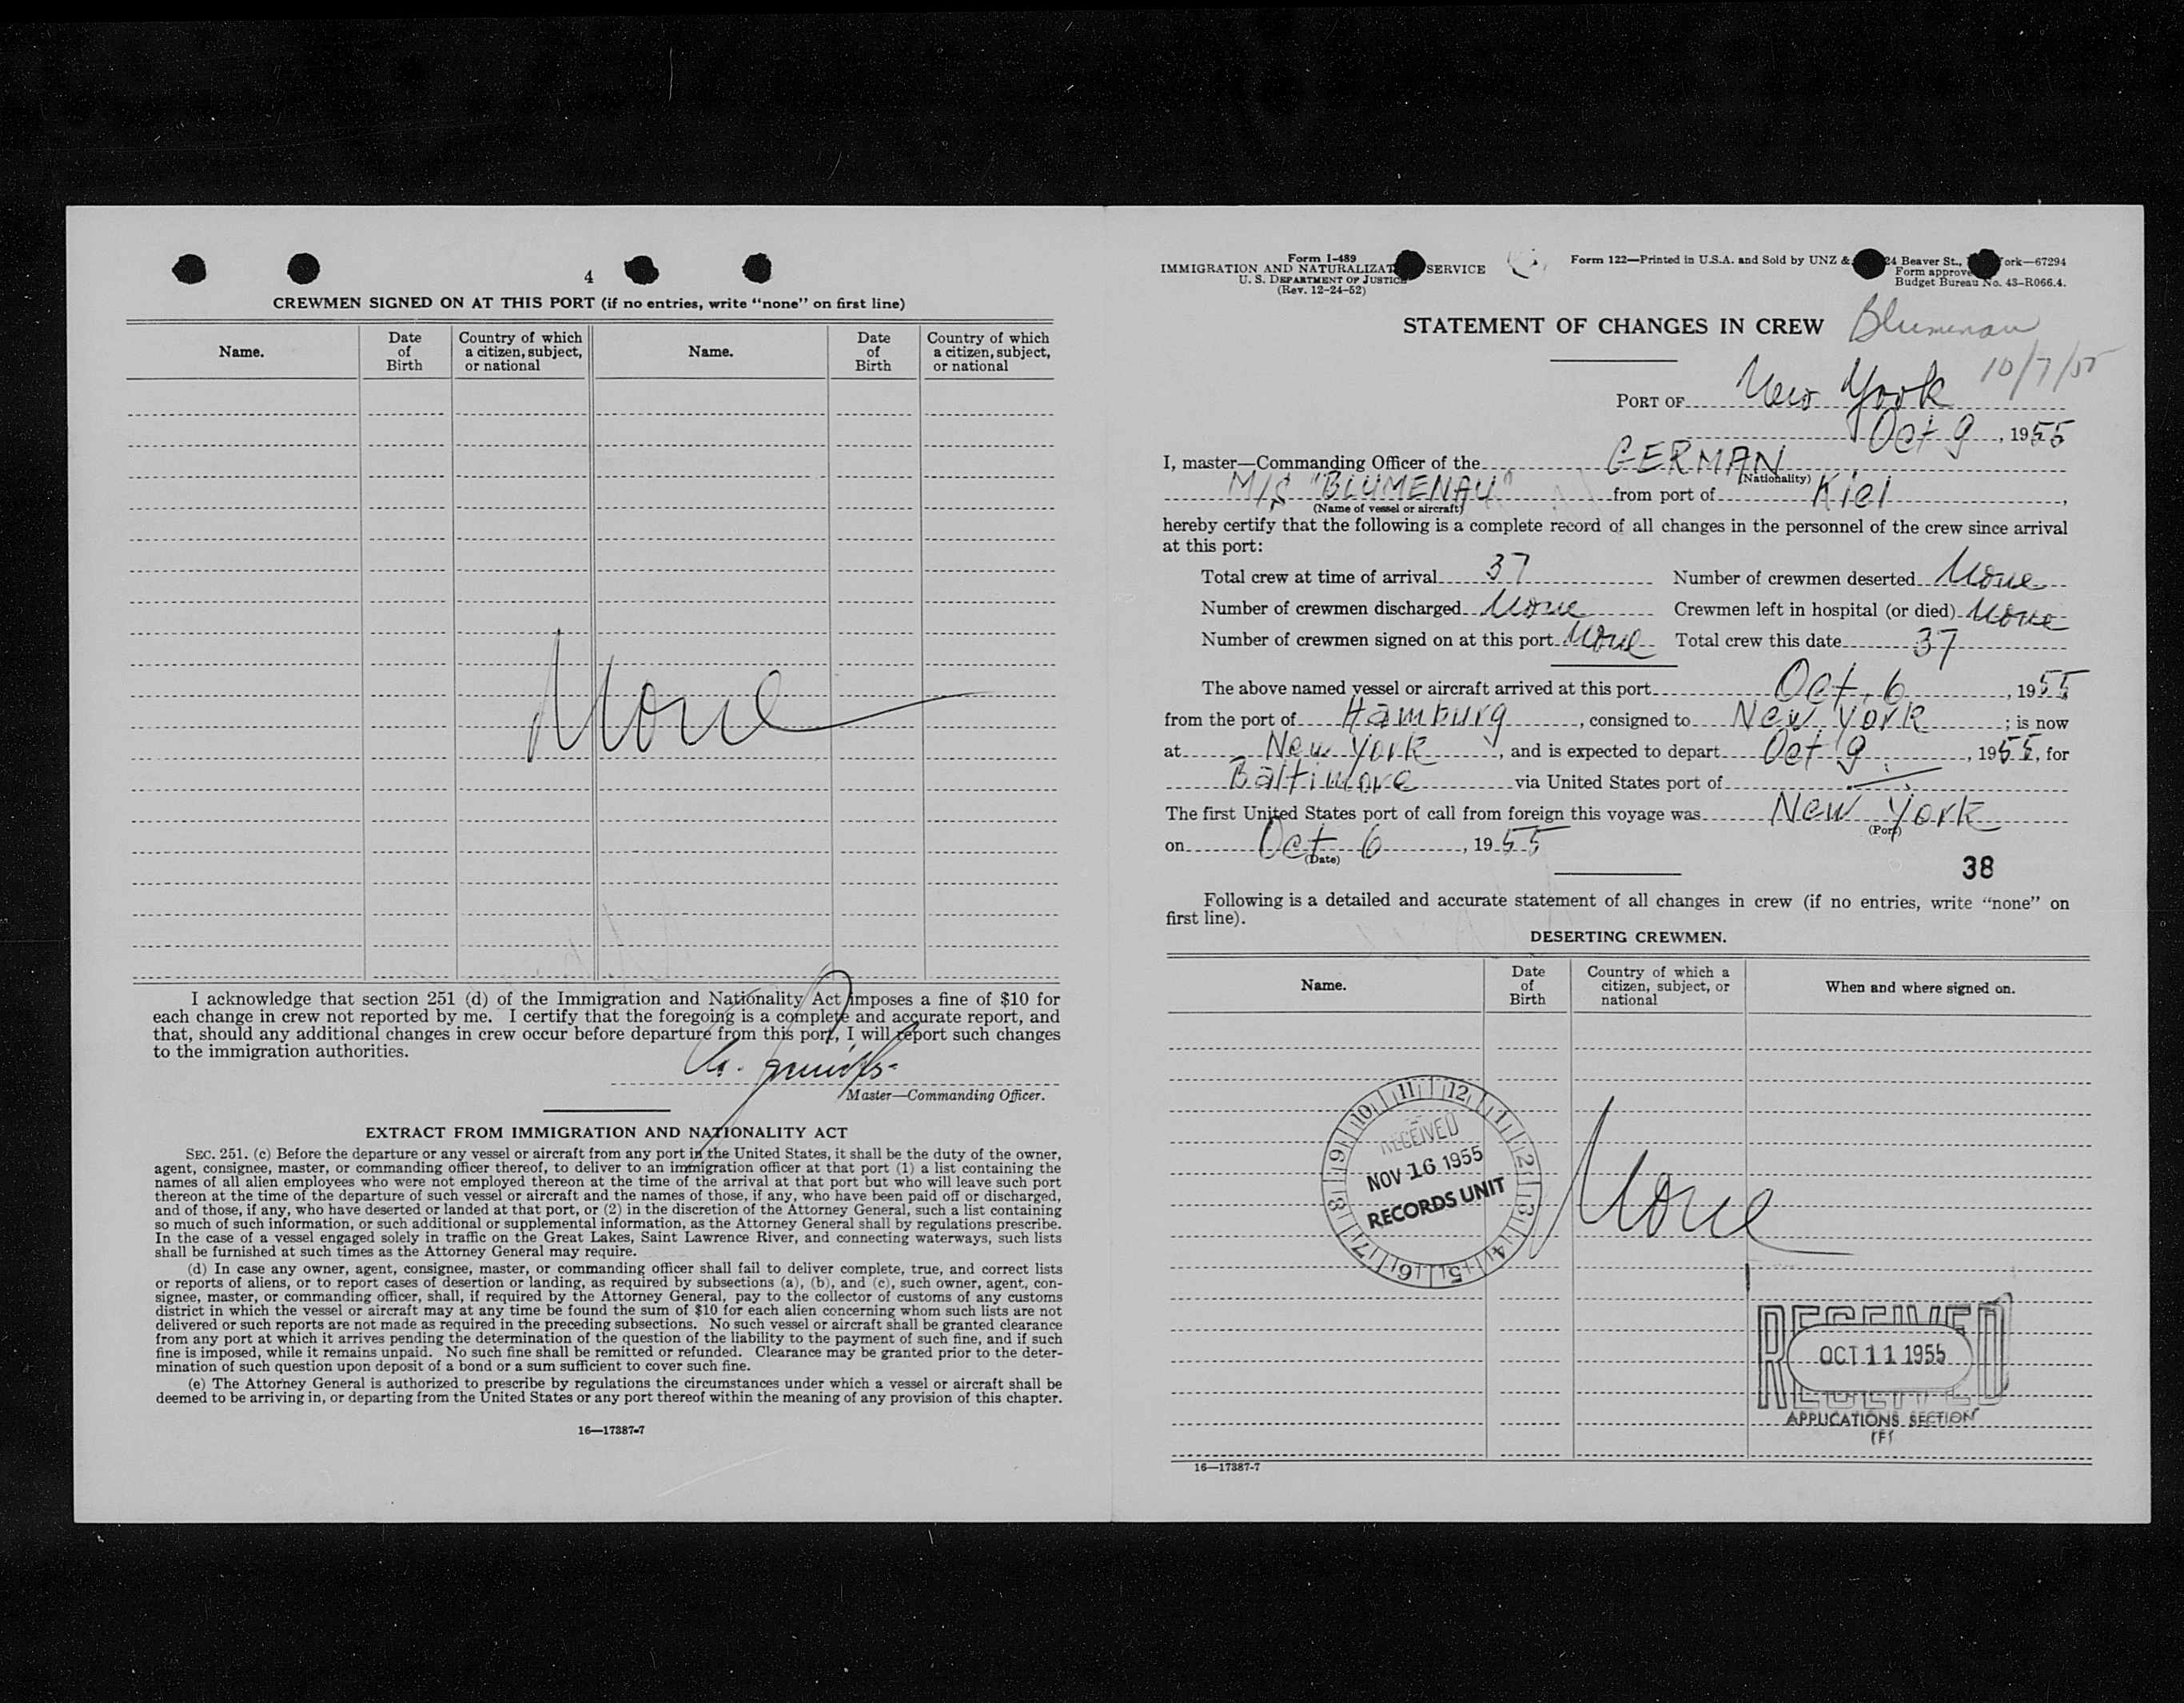 4
CREWMEN SIGNED ON AT THIS PORT (if no entries, write "none" on first line)
Name. Date of Birth Country of which a citizen, subject, or national Name. Date of Birth Country of which a citizen, subject, or national
None
I acknowledge that section 251 (d) of the Immigration and Nationality Act imposes a fine of $10 for
each change in crew not reported by me. I certify that the foregoing is a complete and accurate report, and
that, should any additional changes in crew occur before departure from this port, I will report such changes
to the immigration authorities.
Master—Commanding Officer.
EXTRACT FROM IMMIGRATION AND NATIONALITY ACT
SEC. 251. (c) Before the departure or any vessel or aircraft from any port in the United States, it shall be the duty of the owner,
agent, consignee, master, or commanding officer thereof, to deliver to an immigration officer at that port (1) a list containing the
names of all alien employees who were not employed thereon at the time of the arrival at that port but who will leave such port
thereon at the time of the departure of such vessel or aircraft and the names of those, if any, who have been paid off or discharged,
and of those, if any, who have deserted or landed at that port, or (2) in the discretion of the Attorney General, such a list containing
so much of such information, or such additional or supplemental information, as the Attorney General shall by regulations prescribe.
In the case of a vessel engaged solely in traffic on the Great Lakes, Saint Lawrence River, and connecting waterways, such lists
shall be furnished at such times as the Attorney General may require.
(d) In case any owner, agent, consignee, master, or commanding officer shall fail to deliver complete, true, and correct lists
or reports of aliens, or to report cases of desertion or landing, as required by subsections (a), (b), and (c), such owner, agent, con-
signee, master, or commanding officer, shall, if required by the Attorney General, pay to the collector of customs of any customs
district in which the vessel or aircraft may at any time be found the sum of $10 for each alien concerning whom such lists are not
delivered or such reports are not made as required in the preceding subsections. No such vessel or aircraft shall be granted clearance
from any port at which it arrives pending the determination of the question of the liability to the payment of such fine, and if such
fine is imposed, while it remains unpaid. No such fine shall be remitted or refunded. Clearance may be granted prior to the deter-
mination of such question upon deposit of a bond or a sum sufficient to cover such fine.
(e) The Attorney General is authorized to prescribe by regulations the circumstances under which a vessel or aircraft shall be
deemed to be arriving in, or departing from the United States or any port thereof within the meaning of any provision of this chapter.
16—17387-7
Form I-489
IMMIGRATION AND NATURALIZAT SERVICE
U. S. DEPARTMENT OF JUSTICE
(Rev. 12-24-52)
Form 122—Printed in U.S.A. and Sold by UNZ & 24 Beaver St., ork—67294
Form approve
Budget Bureau No. 43-R066.4.
STATEMENT OF CHANGES IN CREW Blumenau
10/7/55
PORT OF New York
Oct 9, 1955
I, master—Commanding Officer of the GERMAN
(Nationality)
M/S "BLUMENAU" from port of Kiel,
(Name of vessel or aircraft)
hereby certify that the following is a complete record of all changes in the personnel of the crew since arrival
at this port:
Total crew at time of arrival 37 Number of crewmen deserted None
Number of crewmen discharged None Crewmen left in hospital (or died) None
Number of crewmen signed on at this port None Total crew this date 37
The above named vessel or aircraft arrived at this port Oct. 6, 1955
from the port of Hamburg, consigned to New York; is now
at New York, and is expected to depart Oct 9, 1955, for
Baltimore via United States port of —
The first United States port of call from foreign this voyage was New York
(Port)
on Oct 6, 1955
(Date)
38
Following is a detailed and accurate statement of all changes in crew (if no entries, write "none" on
first line).
DESERTING CREWMEN.
Name. Date of Birth Country of which a citizen, subject, or national When and where signed on.
None
11 12 1 2 3 4 5 6 7 8 9 10
RECEIVED
NOV 16 1955
RECORDS UNIT
RECEIVED
OCT 11 1955
RECEIVED
APPLICATIONS SECTION
(F)
16—17387-7